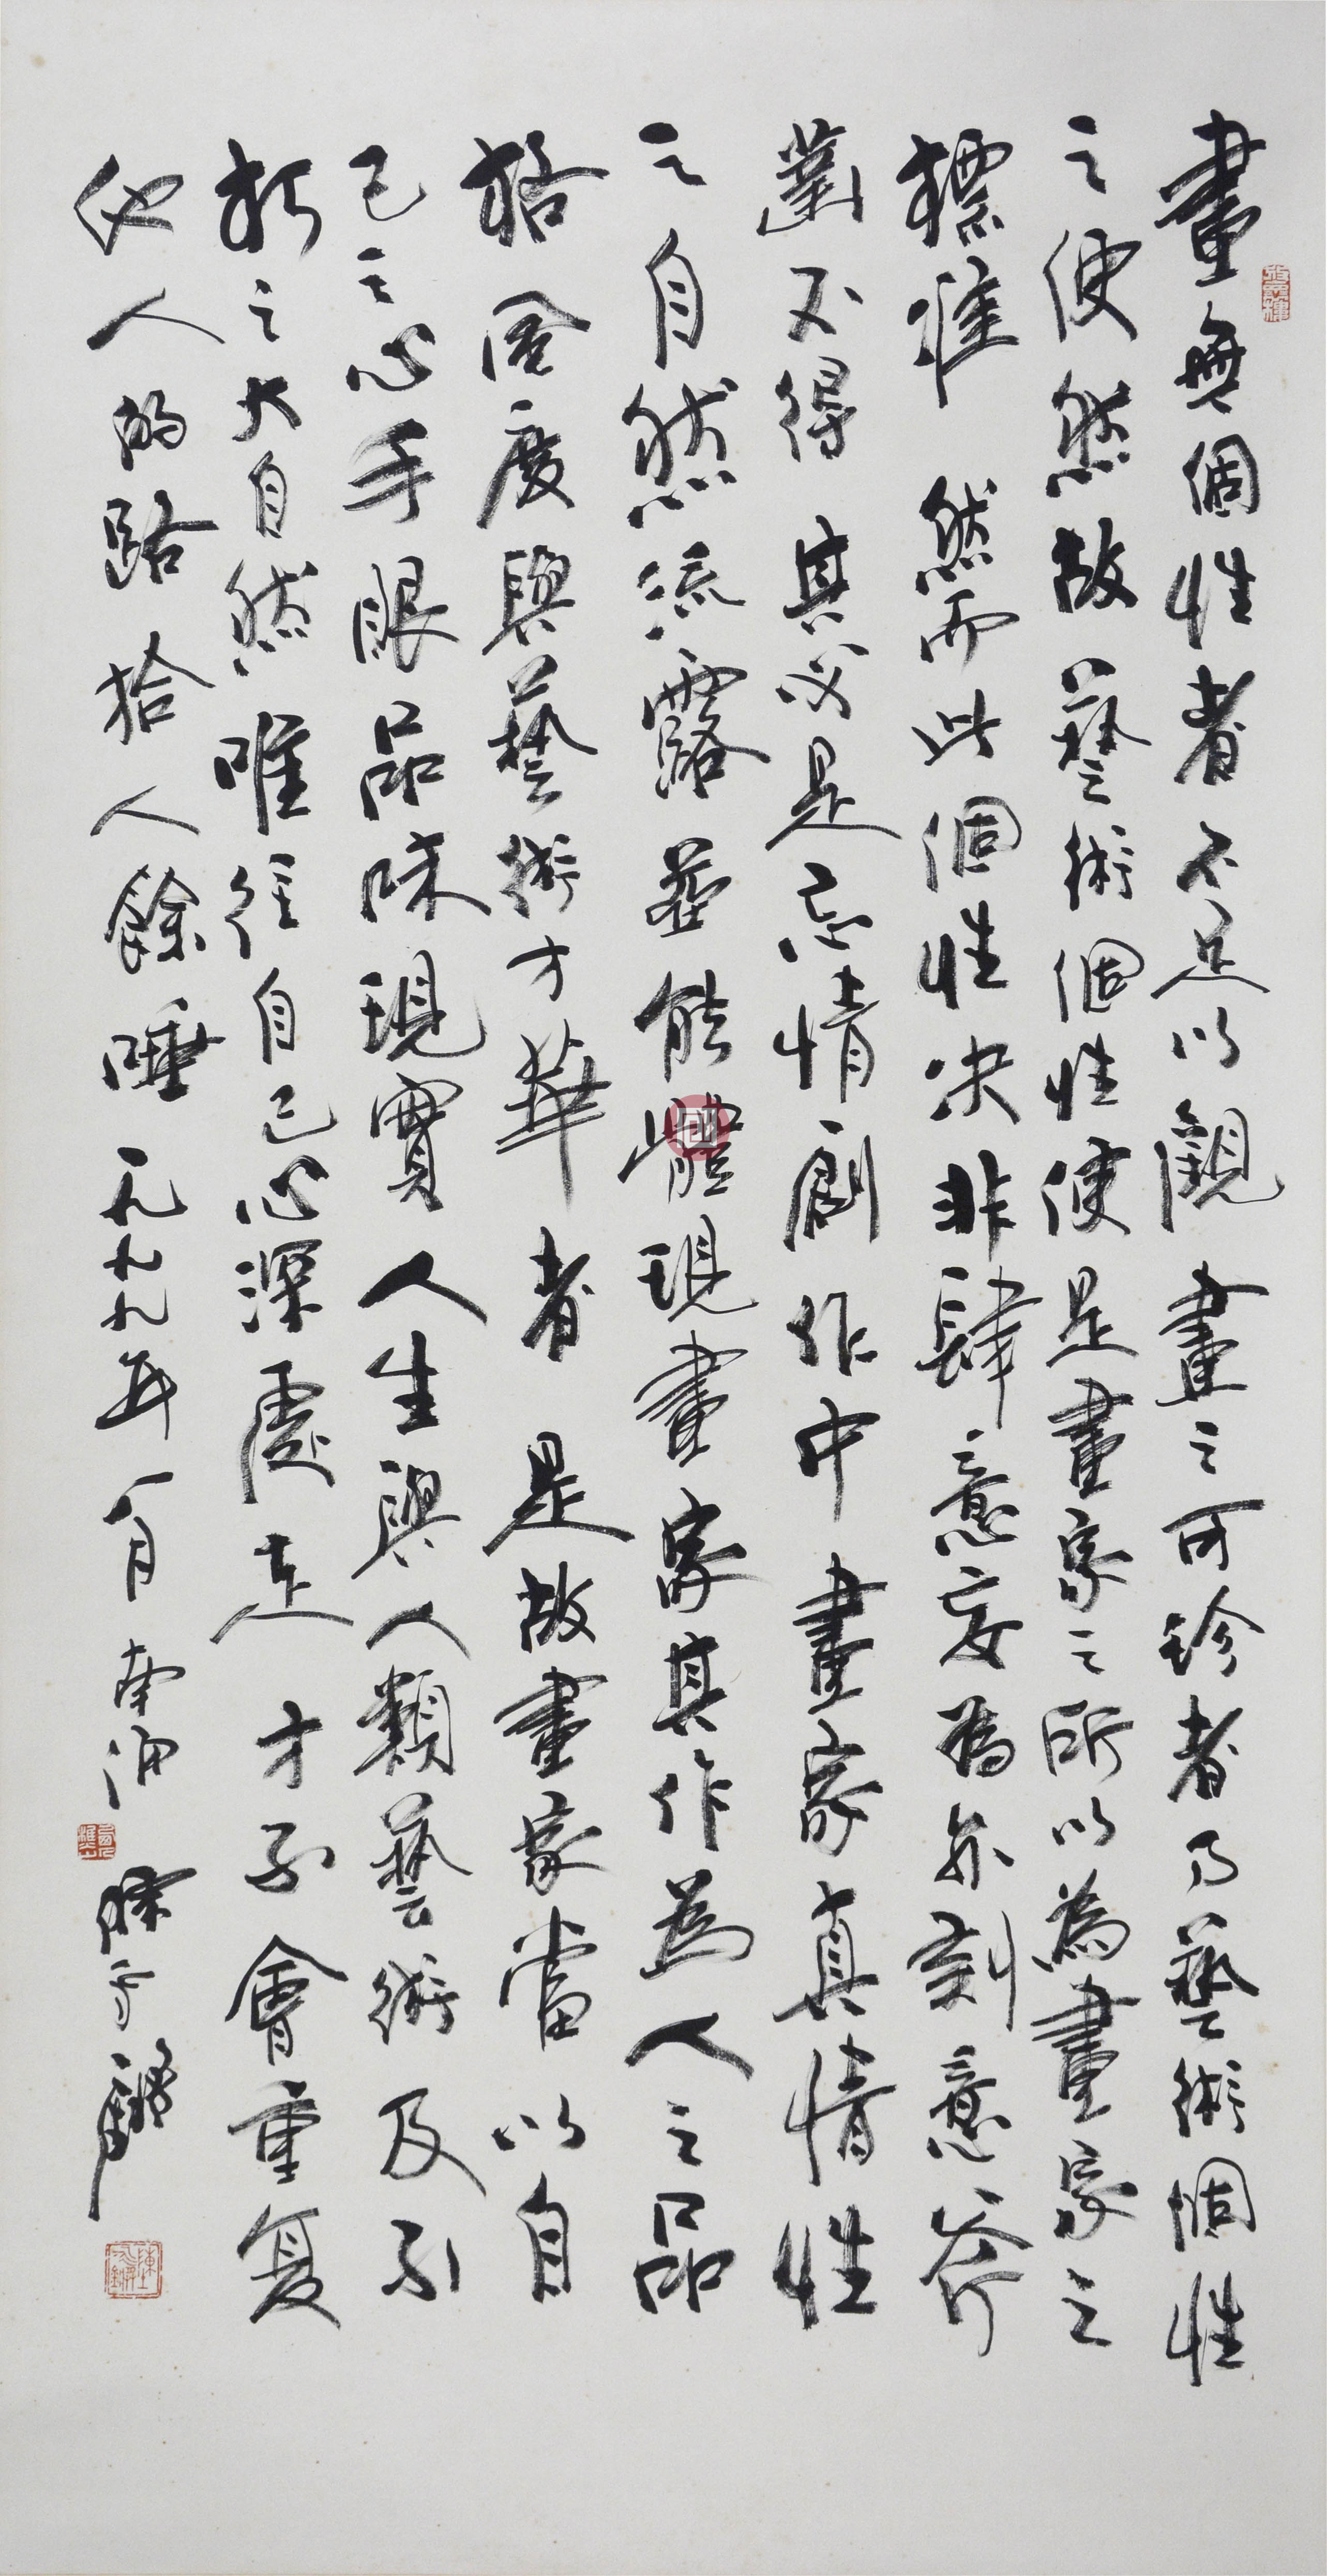 畫無個性者不足以觀畫之可珍者乃藝術個性
之使然故藝術個性便是畫家之所以為畫家之
標準然而此個性决非肆意妄為亦刻意斧
鑿不得其必是忘情創作中畫家真情性
之自然流露並能體現畫家其作為人之品
格風度與藝術才華者是故畫家當以自
己之心手眼品味現實人生與人類藝術及示
析之大自然唯往自己心深處走才不會重复
他人的路拾人餘唾一九九九年一月南海